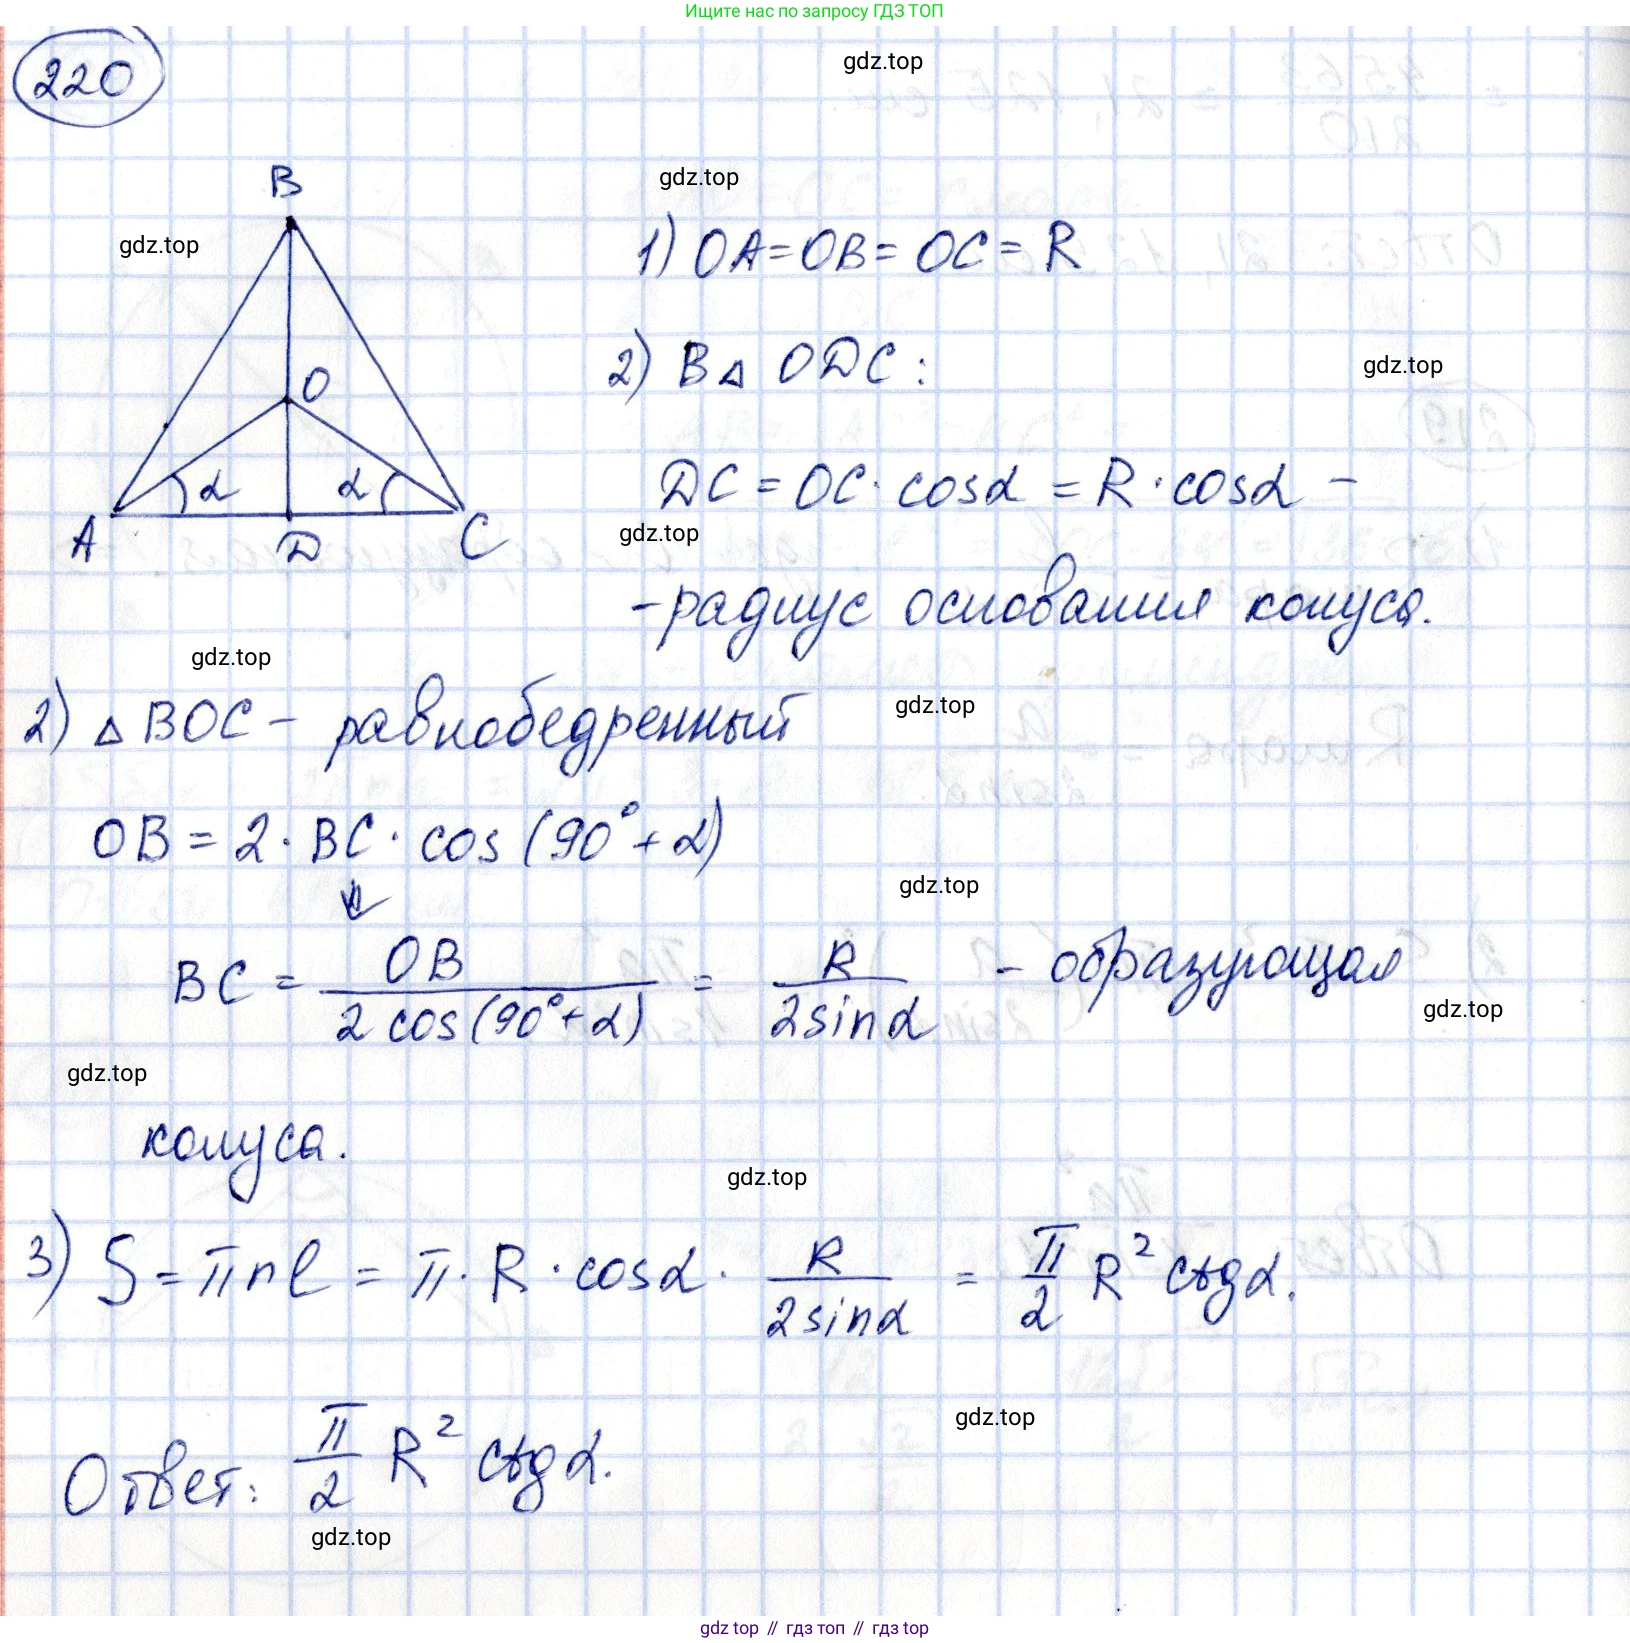 Ищите нас по запросу ГДЗ ТОП
220
gdz.top
B
gdz.top
gdz.top
1) OA = OB = OC = R
2) В △ ODC:
gdz.top
O
α
α
A
D
C
DC = OC · cosα = R · cosα –
gdz.top
– радиус основания конуса.
gdz.top
2) △ BOC – равнобедренный
gdz.top
OB = 2 · BC · cos (90° + α)
gdz.top
BC = OB / 2 cos (90° + α) = R / 2 sin α – образующая
gdz.top
gdz.top
конуса.
gdz.top
3) S = π r l = π · R · cosα · R / 2 sin α = π/2 R² ctg α.
gdz.top
Ответ: π/2 R² ctg α.
gdz.top
gdz top // гдз топ // гдз top